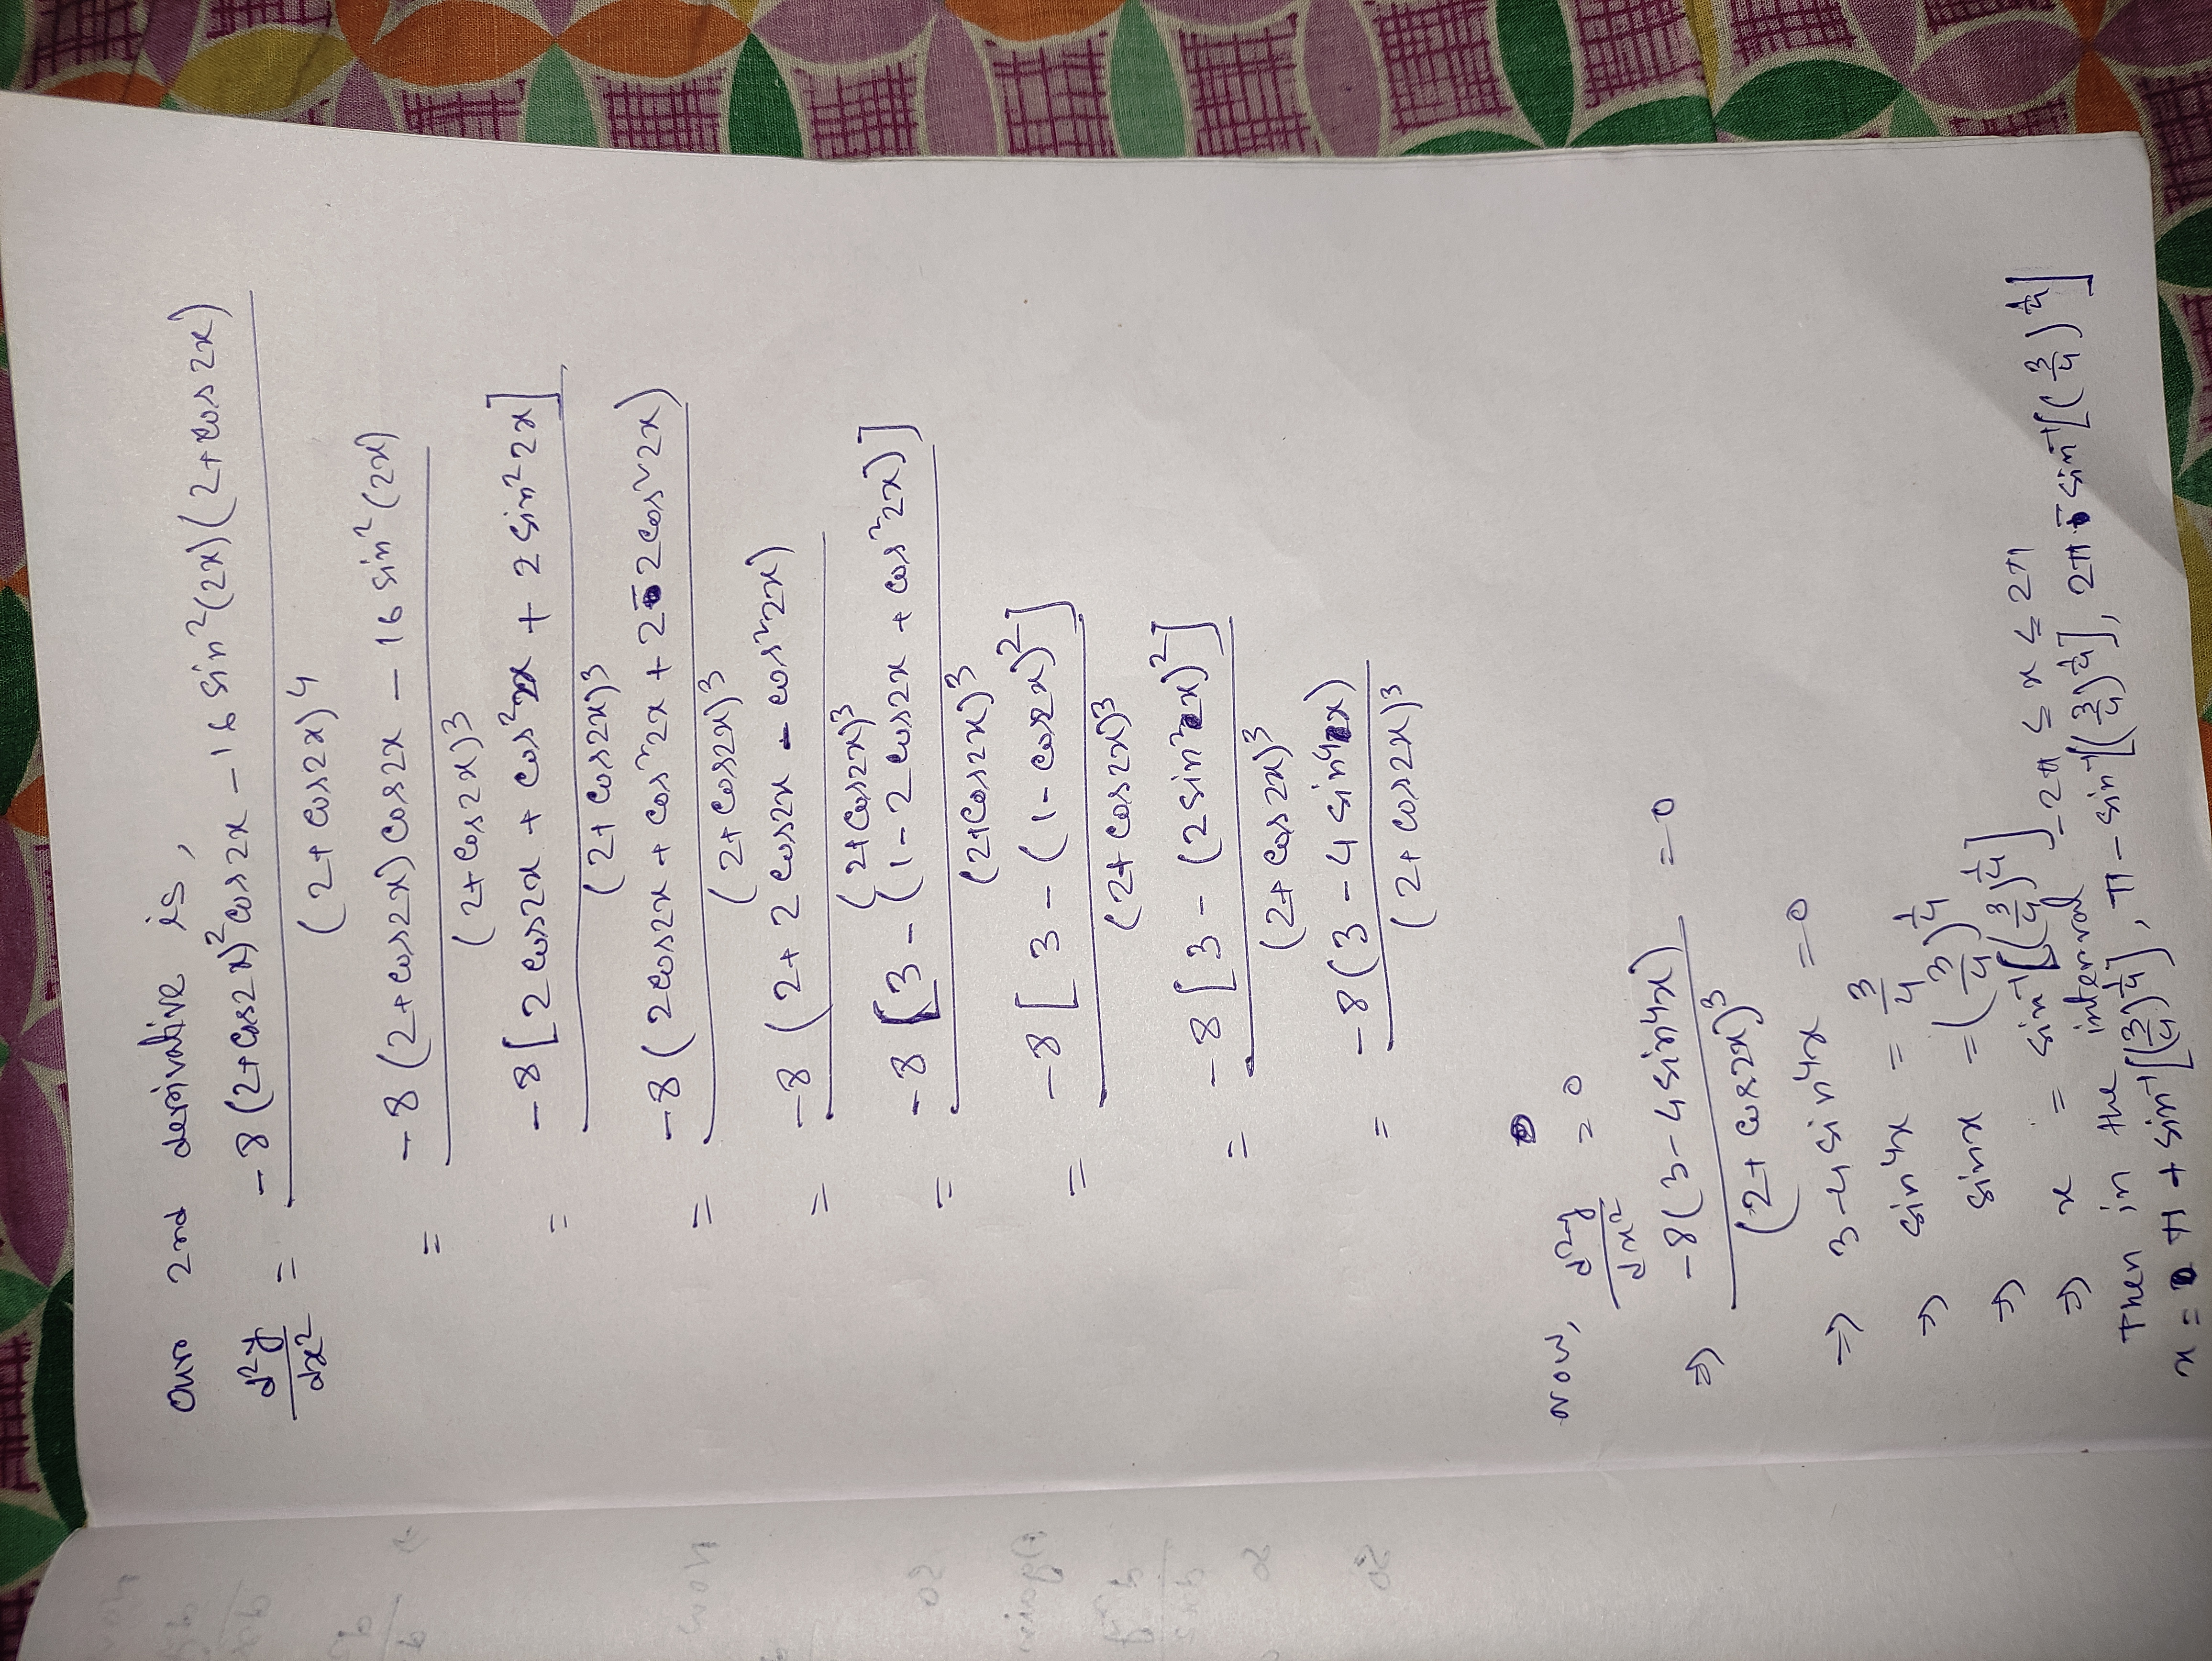 Our 2nd derivative is,
d²y/dx² = -8(2+cos2x)²cos2x - 16 sin²(2x)(2+cos2x) / (2+cos2x)⁴
= -8(2+cos2x)cos2x - 16 sin²(2x) / (2+cos2x)³
= -8[2cos2x + cos²2x + 2 sin²2x] / (2+cos2x)³
= -8(2cos2x + cos²2x + 2 - 2cos²2x) / (2+cos2x)³
= -8(2+2cos2x - cos²2x) / (2+cos2x)³
= -8[3-(1-2cos2x + cos²2x)] / (2+cos2x)³
= -8[3-(1-cos2x)²] / (2+cos2x)³
= -8[3-(2sin²x)²] / (2+cos2x)³
= -8(3-4sin⁴x) / (2+cos2x)³
Now, d²y/dx² = 0
⇒ -8(3-4sin⁴x) / (2+cos2x)³ = 0
⇒ 3-4sin⁴x = 0
⇒ sin⁴x = 3/4
⇒ sinx = (3/4)^1/4
⇒ x = sin⁻¹[(3/4)^1/4]
Then in the interval -2π ≤ x ≤ 2π
x = π + sin⁻¹[(3/4)^1/4], π - sin⁻¹[(3/4)^1/4], 2π - sin⁻¹[(3/4)^1/4]